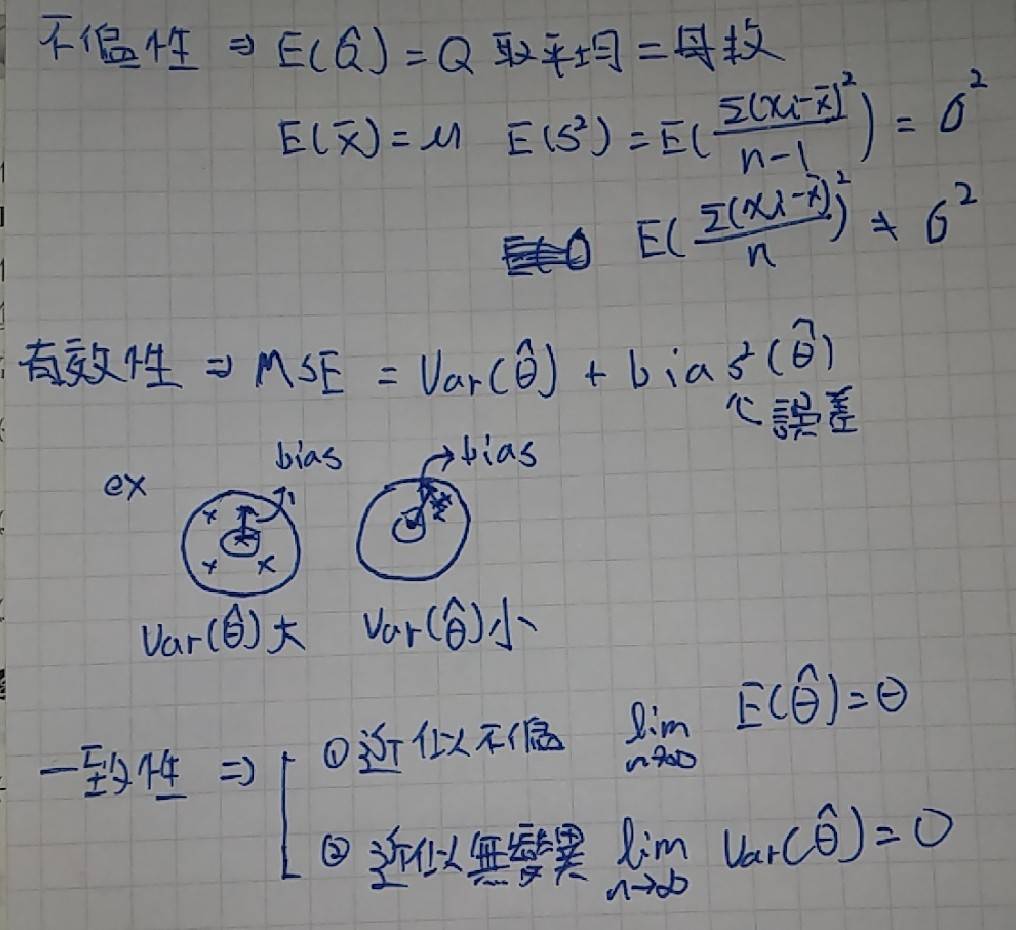 不偏性 ⇒ E(Q̂) = Q 取平均 = 母数
E(x̄) = μ E(S²) = E(Σ(xi-x̄)²/n-1) = σ²
E(Σ(xi-x̄)²/n) ≠ σ²
有效性 ⇒ MSE = Var(θ̂) + bias²(θ̂)
誤差
ex bias bias
Var(θ̂)大 Var(θ̂)小
一致性 ⇒ ①近似不偏 lim n→∞ E(θ̂) = θ
②近似無變異 lim n→∞ Var(θ̂) = 0